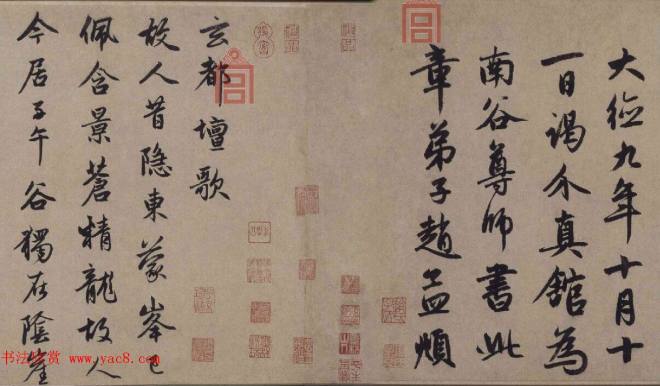 大德九年十月十
一日謁介真館為
南谷尊師書此
章弟子趙孟頫
玄都壇歌
故人昔隱東蒙峯已
佩含景蒼精龍故人
今居子午谷獨在陰崖
书法欣赏 www.yac8.com